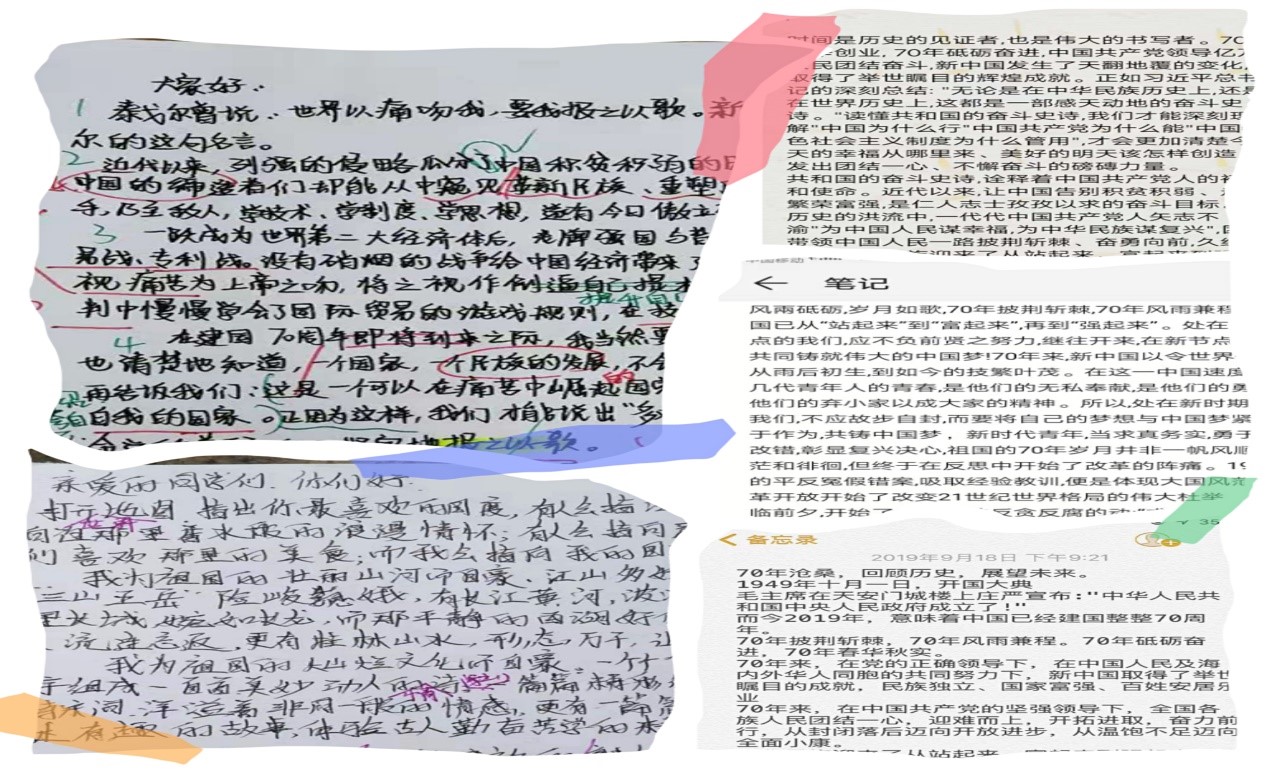 大家好：
1 泰戈尔曾说：世界以痛吻我，要我报之以歌。新
尔的这句名言。
2 近代以来，列强的侵略瓜分了中国积贫积弱的
中国的缔造者们却能从中窥见革新民族、重塑
手，乃至敌人，学技术、学制度、学思想，遂有今日傲立
3 一跃成为世界第二大经济体后，老牌强国与
易战、专利战。没有硝烟的战争给中国经济带来了
视痛苦为上帝之吻，将之视作倒逼自己提
判中慢慢学会了国际贸易的游戏规则，在技
4 在建国70周年即将到来之际，我当然更
也清楚地知道，一个国家，一个民族的发展，不会
再告诉我们：这是一个可以在痛苦中崛起的国
自我的国家。正因为这样，我们才能说出“
坚定地报之以歌。
亲爱的同学们，你们好：
打开地图 指出你最喜欢的国度，有人会指
向往那里香水般的浪漫情怀；有人会指向
们喜欢那里的美食；而我会指向我的国
我为祖国的壮丽山河而自豪、江山多
三山五岳 险峻巍峨，有长江黄河，波
里长城，蜿蜒如长龙，而那平静的西湖好
流连忘返，更有桂林山水，形态万千，让
我为祖国的灿烂文化而自豪。一个个
字组成一首首美妙动人的诗 篇篇精
洋溢着非同一般的情感，更有一篇篇
有趣的故事，体验古人勤奋苦学的
时间是历史的见证者,也是伟大的书写者。70
创业,70年砥砺奋进,中国共产党领导亿
人民团结奋斗,新中国发生了天翻地覆的变化,
取得了举世瞩目的辉煌成就。正如习近平总书
记的深刻总结:"无论是在中华民族历史上,还是
在世界历史上,这都是一部感天动地的奋斗史
诗。"读懂共和国的奋斗史诗,我们才能深刻理
解"中国为什么行"中国共产党为什么能"中国
色社会主义制度为什么管用",才会更加清楚今
天的幸福从哪里来、美好的明天该怎样创造
发出团结一心、不懈奋斗的磅礴力量。
共和国的奋斗史诗,诠释着中国共产党人的初
和使命。近代以来,让中国告别积贫积弱、
繁荣富强,是仁人志士孜孜以求的奋斗目标。
历史的洪流中,一代代中国共产党人矢志不
渝"为中国人民谋幸福,为中华民族谋复兴",
带领中国人民一路披荆斩棘、奋勇向前,久经
迎来了从站起来、富起来到
中国移动
← 笔记
风雨砥砺,岁月如歌,70年披荆斩棘,70年风雨兼程
国已从“站起来”到“富起来”,再到“强起来”。处在
点的我们,应不负前贤之努力,继往开来,在新节点
共同铸就伟大的中国梦!70年来,新中国以令世界
从雨后初生,到如今的枝繁叶茂。在这一中国速度
几代青年人的青春,是他们的无私奉献,是他们的勇
他们的弃小家以成大家的精神。所以,处在新时期
我们,不应故步自封,而要将自己的梦想与中国梦紧
于作为,共铸中国梦，新时代青年,当求真务实,勇于
改错,彰显复兴决心,祖国的70年岁月并非一帆风顺
茫和徘徊,但终于在反思中开始了改革的阵痛。19
的平反冤假错案,吸取经验教训,便是体现大国风范
革开放开始了改变21世纪世界格局的伟大壮举
临前夕,开始了 反贪反腐的动
35
< 备忘录
2019年9月18日 下午9:21
70年沧桑，回顾历史，展望未来。
1949年十月一日，开国大典
毛主席在天安门城楼上庄严宣布："中华人民共
和国中央人民政府成立了！"
而今2019年，意味着中国已经建国整整70周
年。
70年披荆斩棘，70年风雨兼程。70年砥砺奋
进，70年春华秋实。
70年来，在党的正确领导下，在中国人民及海
内外华人同胞的共同努力下，新中国取得了举世
瞩目的成就，民族独立、国家富强、百姓安居乐
业
70年来，在中国共产党的坚强领导下，全国各
族人民团结一心，迎难而上，开拓进取，奋力前
行，从封闭落后迈向开放进步，从温饱不足迈向
全面小康。
迎来了从站起来、富起来到